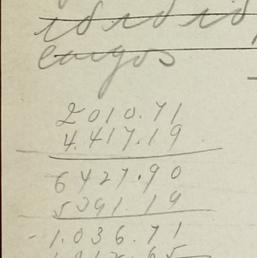 id id id id
cargos
2010.71
4.417.19
6427.90
5391.19
- 1.036.71